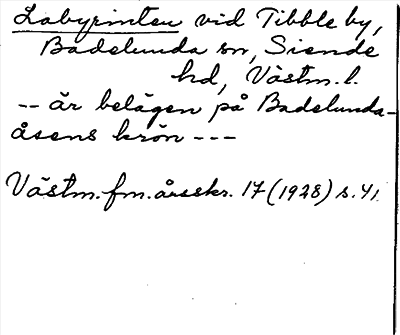 Labyrinten vid Tibble by,
Badelunda sn, Siende
hd, Västm. l.
-- är belägen på Badelunda-
åsens krön ---
Västm. fm. årsskr. 17 (1928) s. 41.